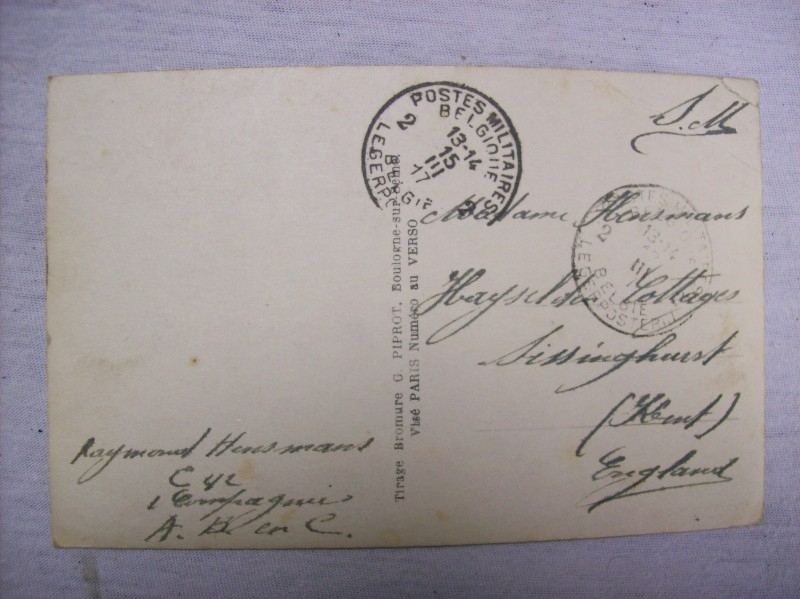 S.M
POSTES MILITAIRES
BELGIQUE
13-14
15
III
17
2 2
BELGIË
LEGERPO
Madame Hensmans
Cottages
Sissinghurst
(Kent)
England
13-14
III
2
BELGIE
LEGERPOSTERIJ
Tirage Bromure G. PIPROT, Boulogne-sur-Seine,
Visé PARIS Numéro au VERSO
Raymond Hensmans
C 42
1 Compagnie
A. B en C.